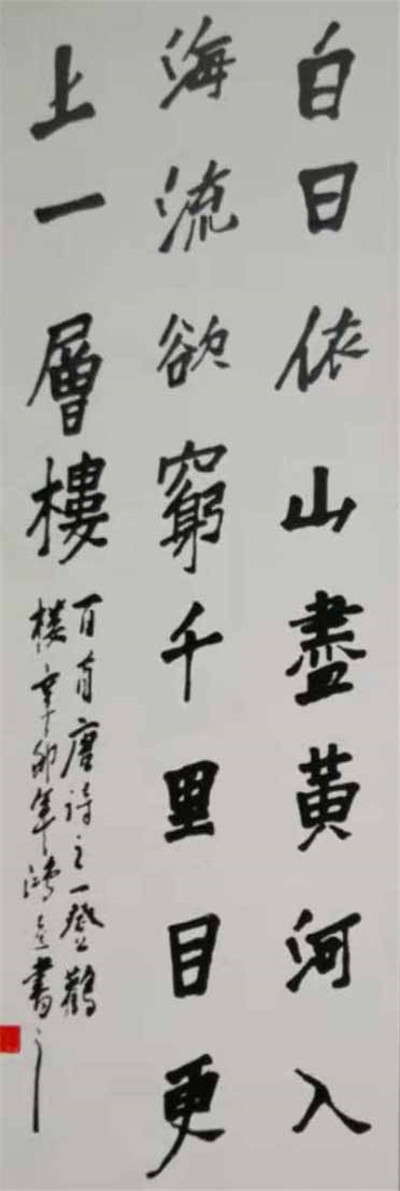 白日依山盡黃河入
海流欲窮千里目更
上一層樓
百首唐詩之一登鸛
樓辛卯年鴻立書之